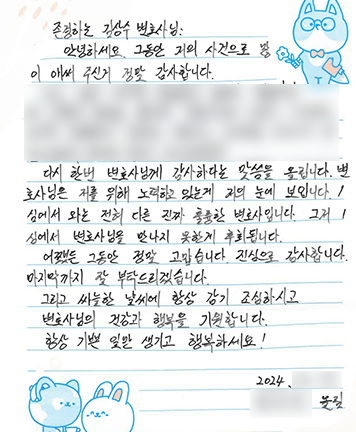 존경하는 김상수 변호사님:
안녕하세요. 그동안 저의 사건으로 많
이 애써 주신거 정말 감사합니다.
다시 한번 변호사님께 감사하다는 말씀을 올립니다. 변
호사님은 저를 위해 노력하고 있는게 저의 눈에 보입니다. 1
심에서 와는 전혀 다른 진짜 훌륭한 변호사입니다. 그저 1
심에서 변호사님을 만나지 못한게 후회됩니다.
어쨌든 그동안 정말 고맙습니다 진심으로 감사합니다.
마지막까지 잘 부탁드리겠습니다.
그리고 싸늘한 날씨에 항상 감기 조심하시고
변호사님의 건강과 행복을 기원합니다.
항상 기쁜 일만 생기고 행복하세요!
2024.
올림